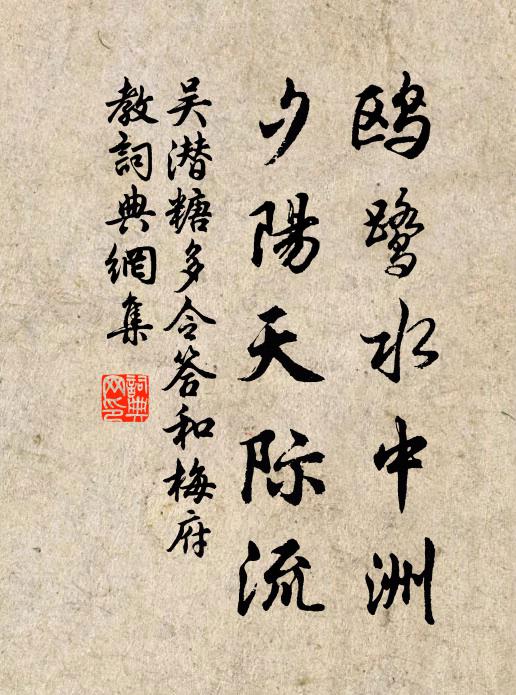 鸥鹭水中洲
夕陽天际流
吴潜糖多令答和梅府
教詞典網集
詞典
网印